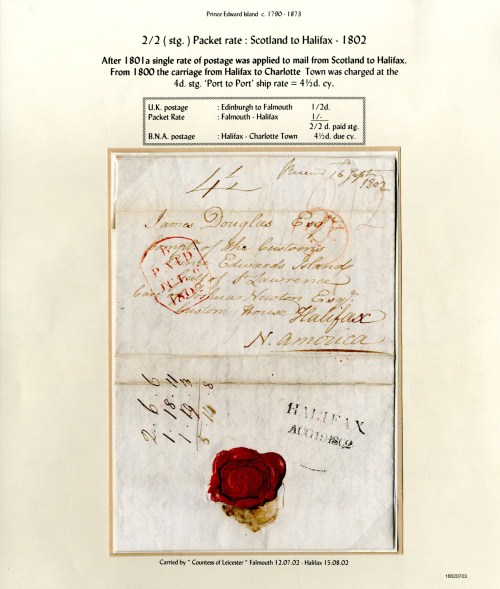 Prince Edward Island c. 1790 - 1873
2/2 ( stg. ) Packet rate : Scotland to Halifax - 1802
After 1801a single rate of postage was applied to mail from Scotland to Halifax.
From 1800 the carriage from Halifax to Charlotte Town was charged at the
4d. stg. 'Port to Port' ship rate = 4½d. cy.
U.K. postage : Edinburgh to Falmouth 1/2d.
Packet Rate : Falmouth - Halifax 1/-
2/2 d. paid stg.
B.N.A. postage : Halifax - Charlotte Town 4½d. due cy.
4½
Received 16th Sept
1802
James Douglas Esqr
Compr of the Customs
Prince Edwards Island
Gulf of St Lawrence
Care of Thomas Newton Esqr
Custom House Halifax
N. America
PAID
1802
2. 6. 6
1. 18. 11
1. 19. 3
5. 14. 8
HALIFAX
AUG 19 1802
Carried by " Countess of Leicester " Falmouth 12.07.02 - Halifax 15.08.02
18020703